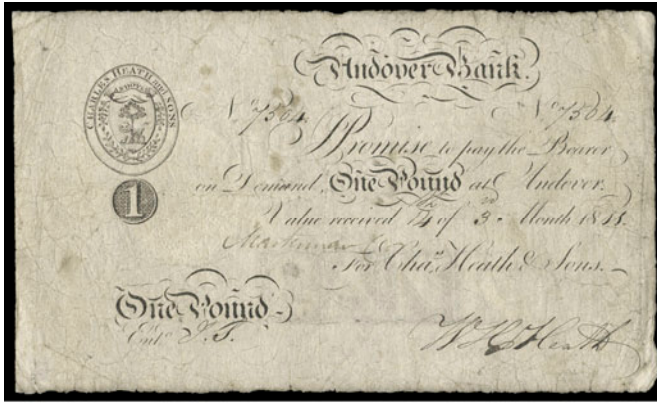 Andover Bank.
CHARLES HEATH AND SONS
ANDOVER
No 7564. No 7564.
I Promise to pay the Bearer
on Demand One Pound at Andover.
1
Value received 14 of 3rd Month 1811.
For Chas. Heath & Sons.
One Pound
Entd. J.T.
W H Heath